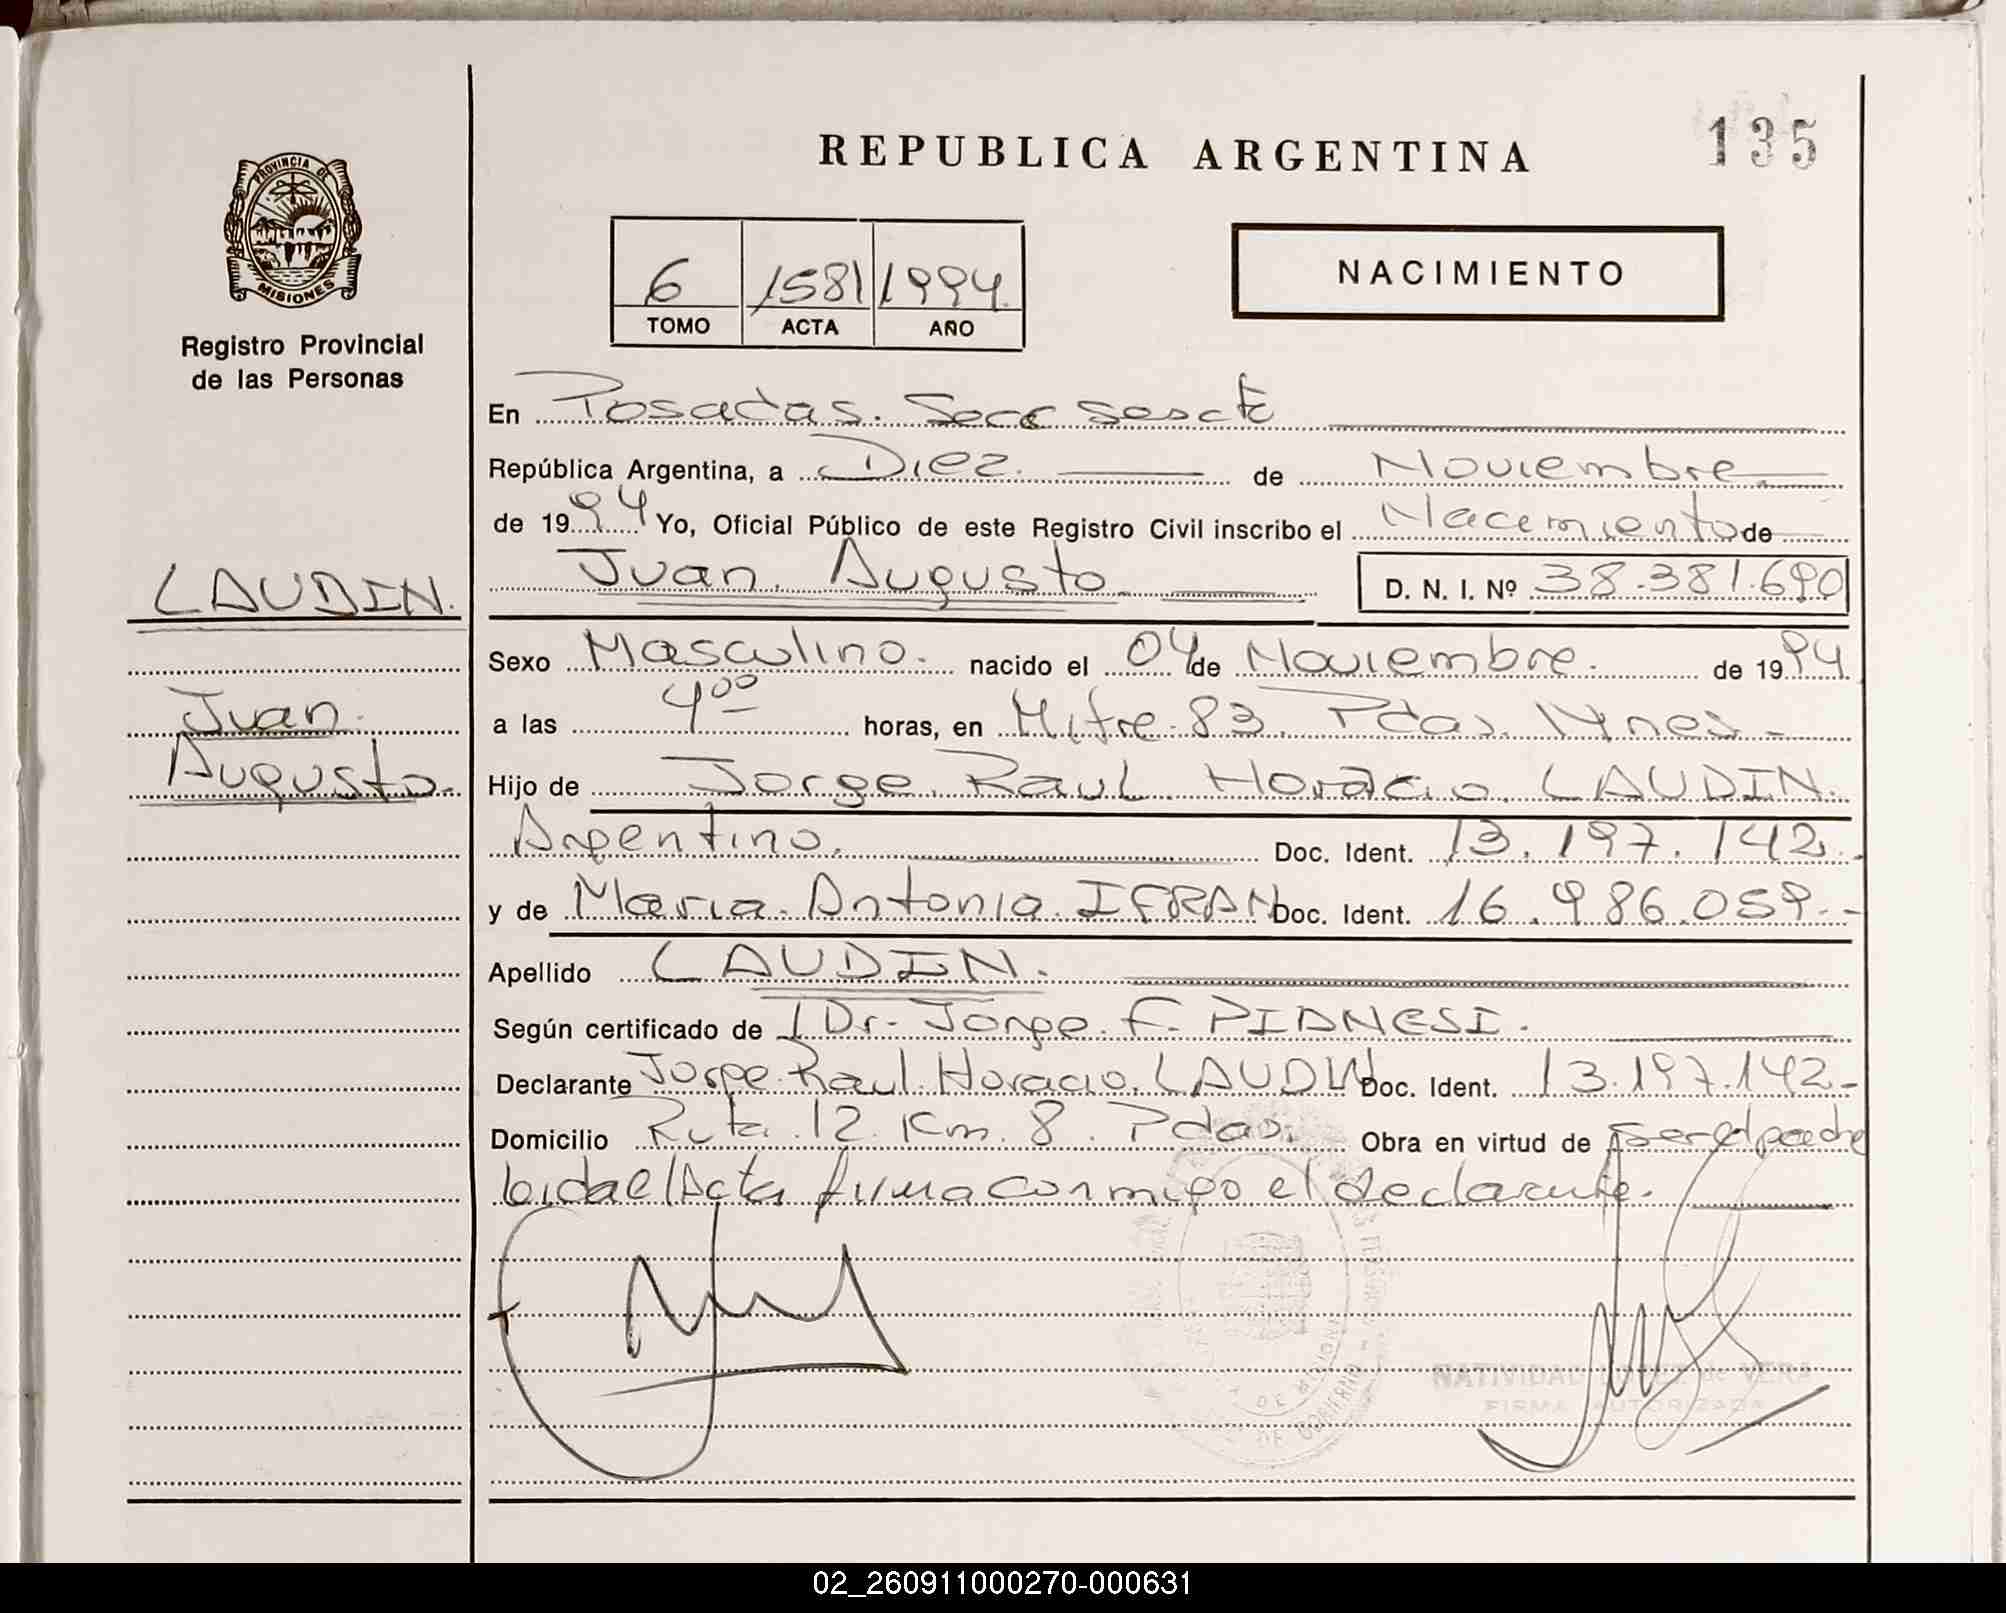 135
REPUBLICA ARGENTINA
PROVINCIA DE
MISIONES
Registro Provincial
de las Personas
NACIMIENTO
6 1581 1994.
TOMO ACTA AÑO
En Posadas. Secc sexta
República Argentina, a Diez. de Noviembre.
de 1994 Yo, Oficial Público de este Registro Civil inscribo el Nacimiento de
Juan. Augusto. D. N. I. Nº 38.381.690
LAUDIN.
Sexo Masculino. nacido el 04 de Noviembre. de 1994
Juan.
a las 4⁰⁰ horas, en Mitre. 83. Pdas. Mnes.-
Augusto.
Hijo de Jorge. Raul. Horacio. LAUDIN.
Argentino. Doc. Ident. 13.197.142.
y de Maria. Antonia. IFRAN Doc. Ident. 16.986.059.-
Apellido LAUDIN.
Según certificado de l Dr. Jorge. F. PIANESI.
Declarante Jorge. Raul. Horacio. LAUDIN Doc. Ident. 13.197.142-
Domicilio Ruta. 12. Km. 8. Pdas. Obra en virtud de ser el padre
leida el Acta firma con migo el declarante.
NATIVIDAD LOPEZ de VERA
FIRMA AUTORIZADA
02_260911000270-000631